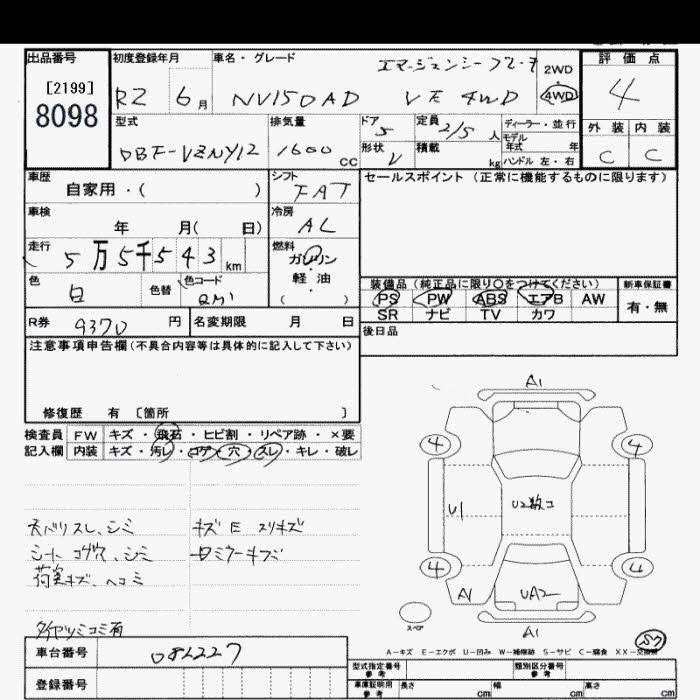 出品番号 初度登録年月 車名・グレード 評価点
[2199] エマージェンシーブレーキ 2WD
8098 R2 6月 NV150AD VE 4WD 4WD 4
型式 排気量 ドア 5 定員 2/5人 ディーラー・並行 外装 内装
モデル年式 年
DBF-VZNY12 1600cc 形状 V 積載 kg ハンドル 左・右 C C
車歴 シフト セールスポイント(正常に機能するものに限ります)
自家用・( ) FAT
車検 冷房
年 月( 日) AC
走行 燃料
5万5千543km ガソリン
色 色替 色コード 軽油 装備品(純正品に限り○をつけてください) 新車保証書
白 QM1 ( ) PS PW ABS エアB AW 有・無
SR ナビ TV カワ
R券 9370円 名変期限 月 日 後日品
注意事項申告欄(不具合内容等は具体的に記入して下さい)
修復歴 有 [箇所 ]
検査員 FW キズ・飛石・ヒビ割・リペア跡・×要
記入欄 内装 キズ・汚レ・コゲ・穴・スレ・キレ・破レ
A1
4 4
U1 U2数コ
4 4
A1 UA2
A1
スペア
天バリスレ、シミ キズE スリキズ
シートコゲ穴、シミ
荷室キズ、ヘコミ
タイヤツミコミ有
A-キズ E-エクボ U-凹み W-補修跡 S-サビ C-腐食 XX-交換済
車台番号 082227
登録番号
型式指定番号 参考 類別区分番号 参考
車庫証明用 参考 長さ cm 幅 cm 高さ cm